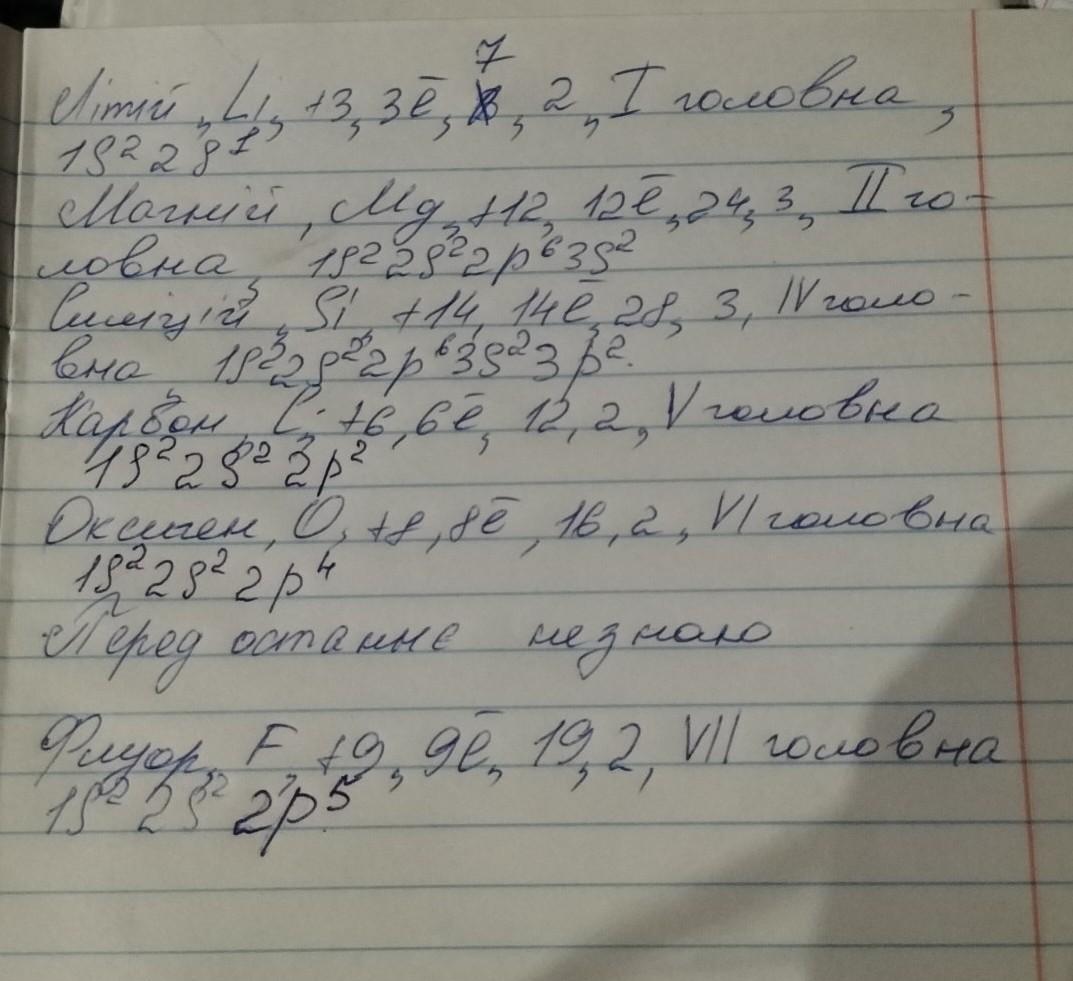 7
Літій, Li, +3, 3ē, 2, I головна,
1s² 2s¹
Магній, Mg, +12, 12ē, 24, 3, II го-
ловна, 1s² 2s² 2p⁶ 3s²
Силіцій, Si, +14, 14ē, 28, 3, IV голо-
вна, 1s² 2s² 2p⁶ 3s² 3p².
Карбон, C, +6, 6ē, 12, 2, V головна
1s² 2s² 2p²
Оксиген, O, +8, 8ē, 16, 2, VI головна
1s² 2s² 2p⁴
Перед останнє незнаю
Флуор, F, +9, 9ē, 19, 2, VII головна
1s² 2s² 2p⁵